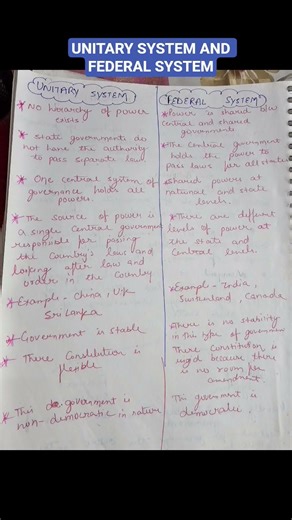 UNITARY SYSTEM AND
FEDERAL SYSTEM
UNITARY SYSTEM
* No hierarchy of power
exists
* State governments do
not have the authority
to pass separate law
* One central system of
governance holds all
powers.
* The source of power is
a single Central government
responsible for passing
the Country's laws and
looking after law and
order in the Country
* Example - China, UK
Sri Lanka
* Government is stable
* There Constitution is
flexible
* This government is
non-democratic in nature
FEDERAL SYSTEM
* Power is shared b/w
central and shared
governments
The Central government
holds the power to
pass laws for all states
Shared powers at
national and state
levels.
There are different
levels of power at
the state and
Central levels.
Example - India,
Switzerland, Canada
There is no stability
in this type of government
There Constitution is
rigid because there
is no room for
amendment
This government is
democratic.